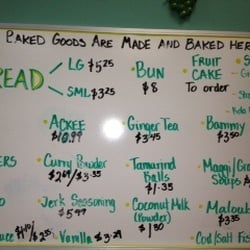 BAKED GOODS ARE MADE AND BAKED HER
READ
LG $5.25
SML $3.25
BUN
$8
FRUIT
CAKE
To order
ACKEE
$10.99
Ginger Tea
$3.45
Bammy
$3.50
ERS
Curry Powder
$2.69/$3.35
Tamarind
Balls
$1.35
Maggi/Gra
Soups
Jerk Seasoning
$5.99
Coconut Milk
(Powder)
$1.80
Malout
$3.35
Vanilla $3.29
Cod/Salt Fis